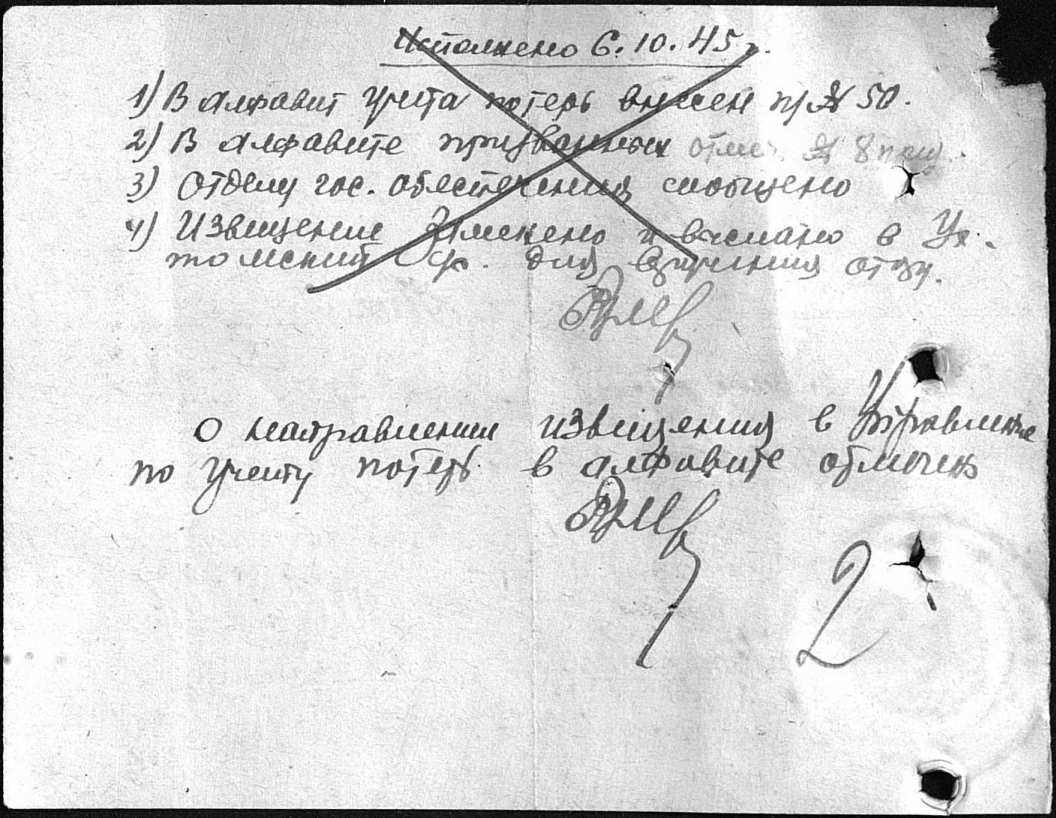 Исполнено 6.10.45 г.
1) В алфавит учета потерь внесен п/№ 50.
2) В алфавите призванных отмеч. № 8
3) Отделу гос. обеспечения сообщено
4) Извещение заменено и выслано в Ух-
томский для вручения отцу.
О направлении извещения в Управление
по учету потерь в алфавите отмечено
2